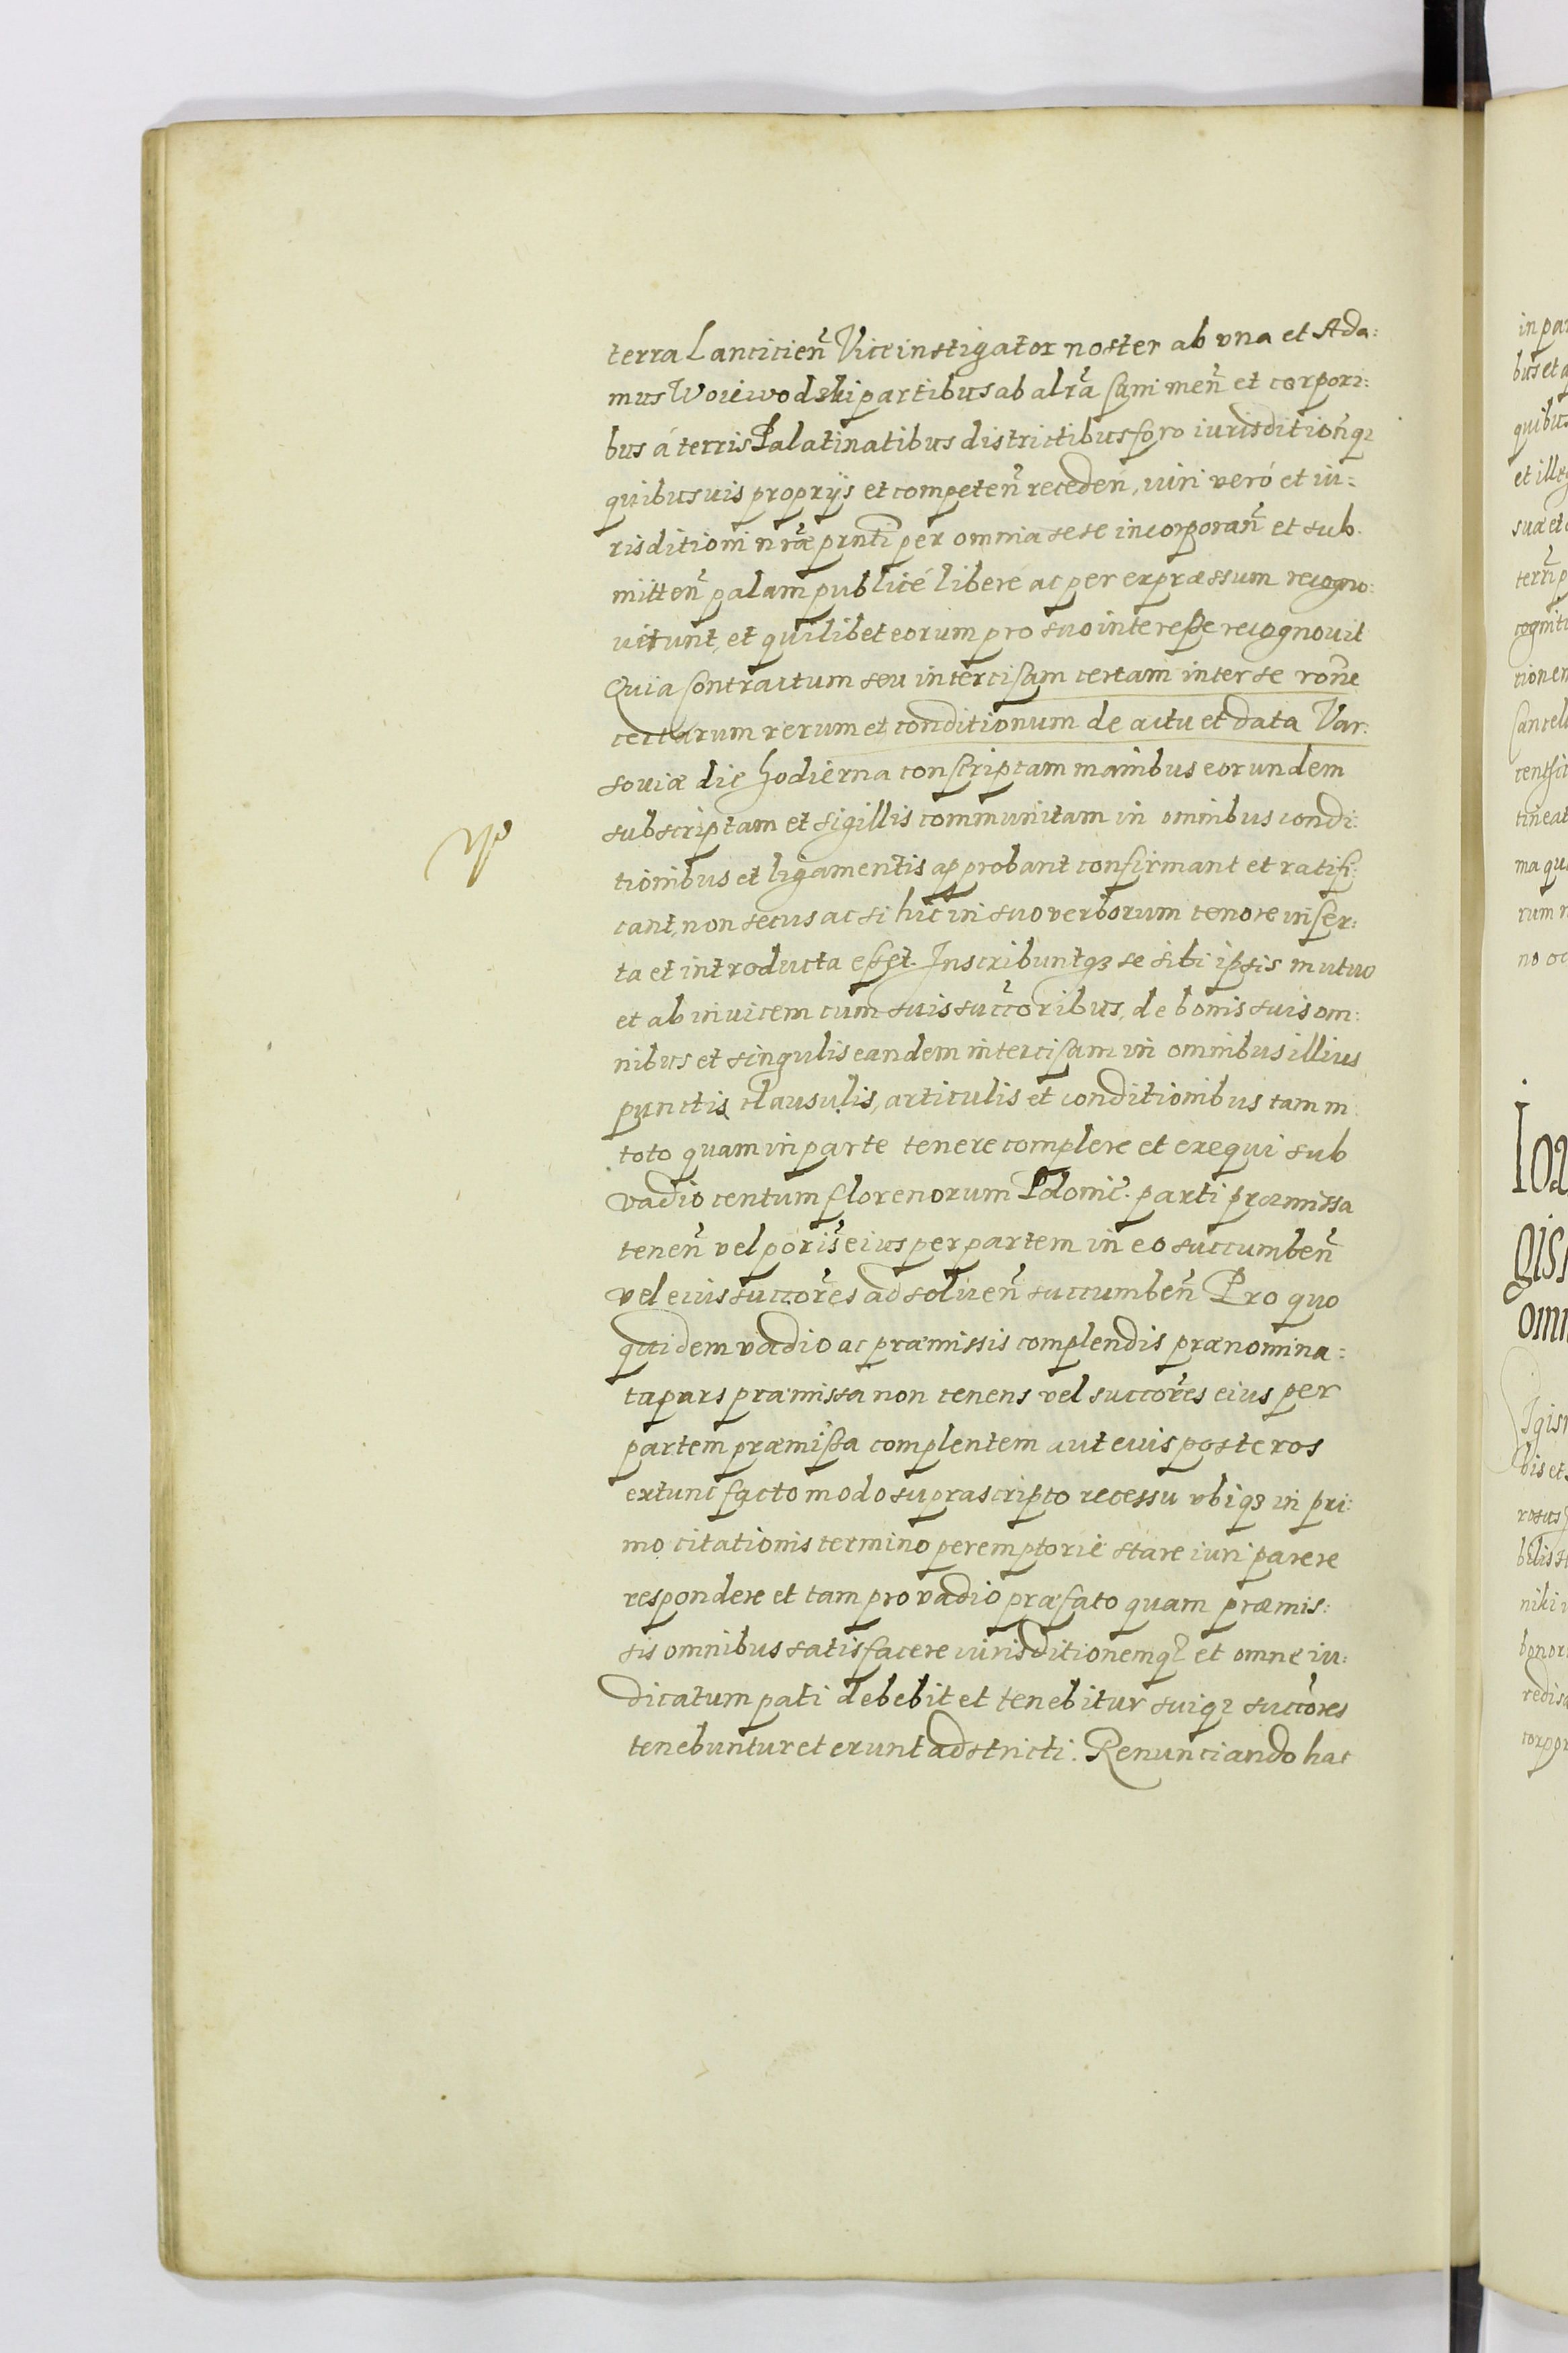 terra Lancicien̄ Viceinstigator noster ab vna et Ada:
mus Woiewodski partibus ab alr̄a sani men̄ et corpori:
bus á terris Palatinatibus districtibus foro iurisdition̄qꝫ
quibusuis proprijs et competen̄ receden̄, iuri veró et iu:
risditioni nr̄æ prn̄ti per omnia sese incorporan̄ et sub
mitten̄ palam publicé liberé ac per expræssum recogno:
uerunt, et quilibet eorum pro suo interesse recognouit
Quia contractum seu intercisam certam inter se ron̄e
certarum rerum et conditionum de actu et data Var:
souiæ die hodierna conscriptam manibus eorundem
subscriptam et sigillis communitam in omnibus condi:
tionibus et ligamentis approbant confirmant et ratifi:
cant, non secus ac si hic in suo verborum tenore inser:
ta et introducta esset. Inscribuntqꝫ se sibi ipsis mutuo
et ab inuicem cum suis succ̄oribus, de bonis suis om:
nibus et singulis eandem intercisam in omnibus illius
punctis, clausulis, articulis et conditionibus tam in
toto quam in parte tenere complere et exequi sub
vadio centum florenorum Polonic̄. parti præmissa
tenen̄ vel poris̄ eius per partem in eo succumben̄
vel eius succor̄es adsoluen̄ succumben̄ Pro quo
quidem vadio ac præmissis complendis prænomina:
ta pars præmissa non tenens vel succor̄es eius per
partem præmissa complentem aut euis posteros
extunc facto modo suprascripto recessu vbiqꝫ in pri:
mo citationis termino peremptorié stare iuri parere
respondere et tam pro vadio præfato quam præmis:
sis omnibus satisfacere iurisditionemqꝫ et omne iu:
dicatum pati debebit et tenebitur suiqꝫ succor̄es
tenebuntur et erunt adstricti. Renunciando hac